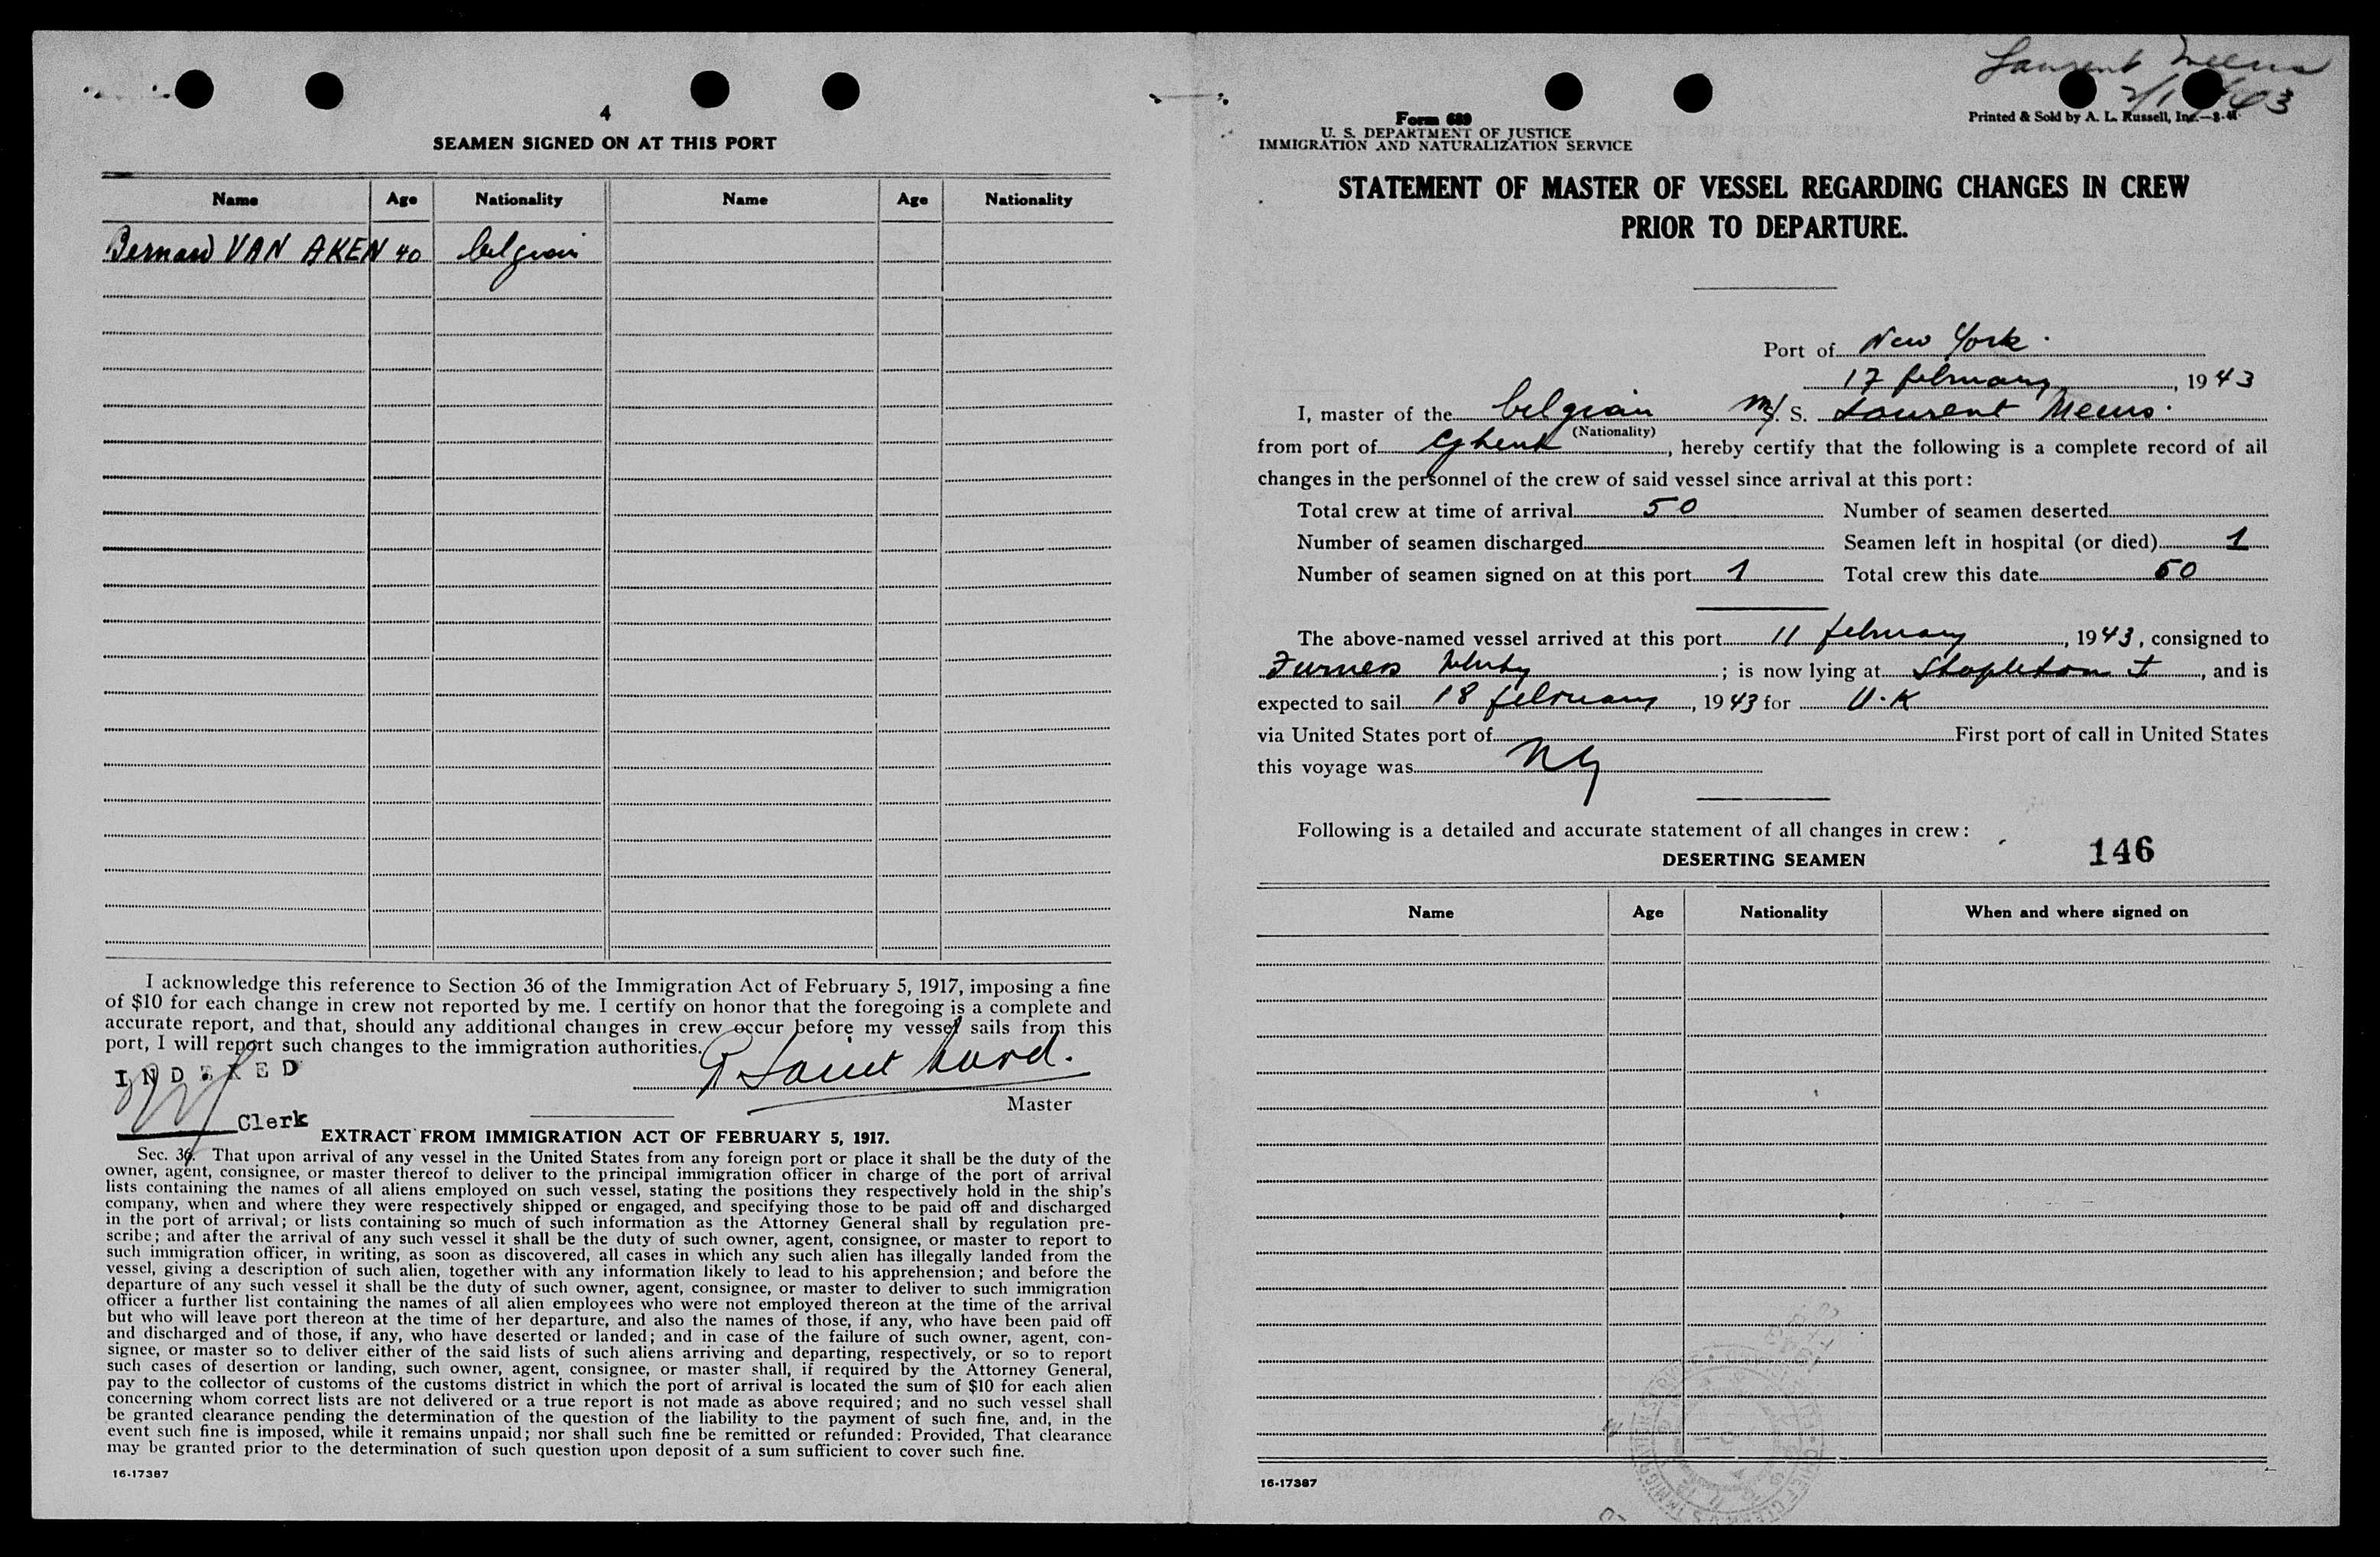 4
SEAMEN SIGNED ON AT THIS PORT
Name Age Nationality Name Age Nationality
Bernard VAN AKEN 40 belgian
I acknowledge this reference to Section 36 of the Immigration Act of February 5, 1917, imposing a fine
of $10 for each change in crew not reported by me. I certify on honor that the foregoing is a complete and
accurate report, and that, should any additional changes in crew occur before my vessel sails from this
port, I will report such changes to the immigration authorities.
INDEXED
Master
Clerk
EXTRACT FROM IMMIGRATION ACT OF FEBRUARY 5, 1917.
Sec. 36. That upon arrival of any vessel in the United States from any foreign port or place it shall be the duty of the
owner, agent, consignee, or master thereof to deliver to the principal immigration officer in charge of the port of arrival
lists containing the names of all aliens employed on such vessel, stating the positions they respectively hold in the ship's
company, when and where they were respectively shipped or engaged, and specifying those to be paid off and discharged
in the port of arrival; or lists containing so much of such information as the Attorney General shall by regulation pre-
scribe; and after the arrival of any such vessel it shall be the duty of such owner, agent, consignee, or master to report to
such immigration officer, in writing, as soon as discovered, all cases in which any such alien has illegally landed from the
vessel, giving a description of such alien, together with any information likely to lead to his apprehension; and before the
departure of any such vessel it shall be the duty of such owner, agent, consignee, or master to deliver to such immigration
officer a further list containing the names of all alien employees who were not employed thereon at the time of the arrival
but who will leave port thereon at the time of her departure, and also the names of those, if any, who have been paid off
and discharged and of those, if any, who have deserted or landed; and in case of the failure of such owner, agent, con-
signee, or master so to deliver either of the said lists of such aliens arriving and departing, respectively, or so to report
such cases of desertion or landing, such owner, agent, consignee, or master shall, if required by the Attorney General,
pay to the collector of customs of the customs district in which the port of arrival is located the sum of $10 for each alien
concerning whom correct lists are not delivered or a true report is not made as above required; and no such vessel shall
be granted clearance pending the determination of the question of the liability to the payment of such fine, and, in the
event such fine is imposed, while it remains unpaid; nor shall such fine be remitted or refunded: Provided, That clearance
may be granted prior to the determination of such question upon deposit of a sum sufficient to cover such fine.
16-17387
Laurent Meeus
Form 689
U. S. DEPARTMENT OF JUSTICE
IMMIGRATION AND NATURALIZATION SERVICE
Printed & Sold by A. L. Russell, Inc.
STATEMENT OF MASTER OF VESSEL REGARDING CHANGES IN CREW
PRIOR TO DEPARTURE.
Port of New York.
17 february, 1943
I, master of the belgian M/. S. Laurent Meeus.
(Nationality)
from port of Ghent, hereby certify that the following is a complete record of all
changes in the personnel of the crew of said vessel since arrival at this port:
Total crew at time of arrival 50 Number of seamen deserted
Number of seamen discharged Seamen left in hospital (or died) 1
Number of seamen signed on at this port 1 Total crew this date 50
The above-named vessel arrived at this port 11 february, 1943, consigned to
Furness Withy; is now lying at Stapleton, and is
expected to sail 18 february, 1943 for U.K
via United States port of First port of call in United States
this voyage was NY
Following is a detailed and accurate statement of all changes in crew:
DESERTING SEAMEN 146
Name Age Nationality When and where signed on
16-17387